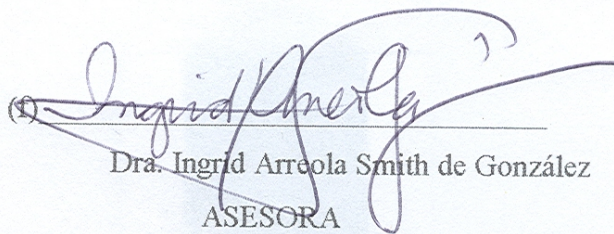 (f) Ingrid
Dra. Ingrid Arreola Smith de González
ASESORA